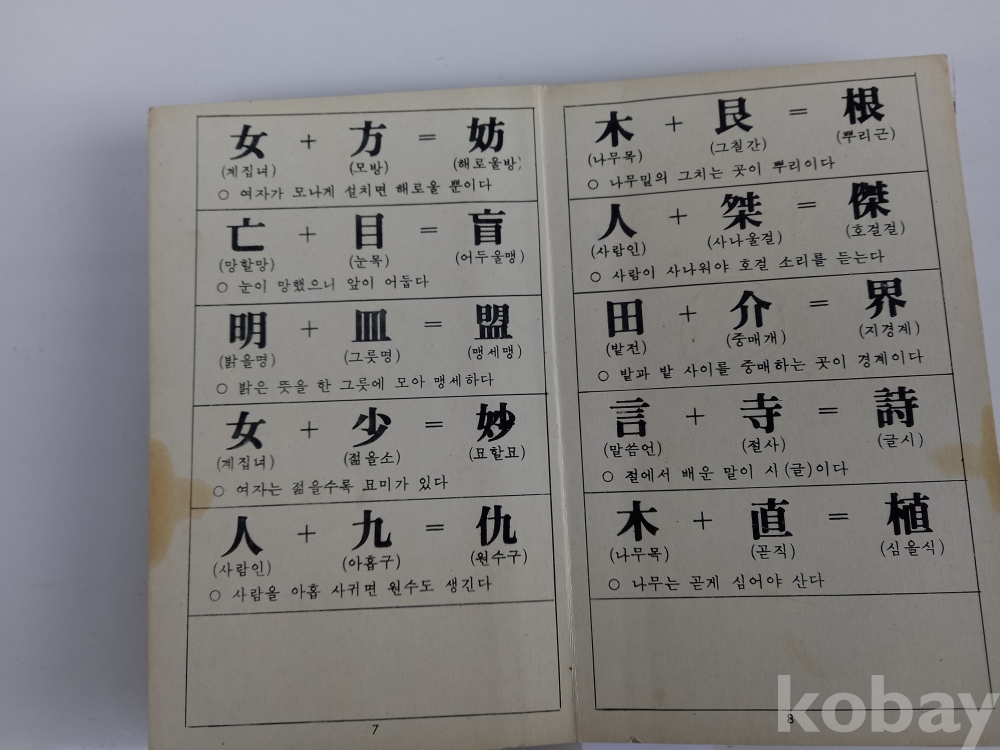 女 + 方 = 妨
(계집녀) (모방) (해로울방)
○ 여자가 모나게 설치면 해로울 뿐이다
亡 + 目 = 盲
(망할망) (눈목) (어두울맹)
○ 눈이 망했으니 앞이 어둡다
明 + 皿 = 盟
(밝을명) (그릇명) (맹세맹)
○ 밝은 뜻을 한 그릇에 모아 맹세하다
女 + 少 = 妙
(계집녀) (젊을소) (묘할묘)
○ 여자는 젊을수록 묘미가 있다
人 + 九 = 仇
(사람인) (아홉구) (원수구)
○ 사람을 아홉 사귀면 원수도 생긴다
7
木 + 艮 = 根
(나무목) (그칠간) (뿌리근)
○ 나무밑의 그치는 곳이 뿌리이다
人 + 桀 = 傑
(사람인) (사나울걸) (호걸걸)
○ 사람이 사나워야 호걸 소리를 듣는다
田 + 介 = 界
(밭전) (중매개) (지경계)
○ 밭과 밭 사이를 중매하는 곳이 경계이다
言 + 寺 = 詩
(말씀언) (절사) (글시)
○ 절에서 배운 말이 시(글)이다
木 + 直 = 植
(나무목) (곧직) (심을식)
○ 나무는 곧게 심어야 산다
8
kobay